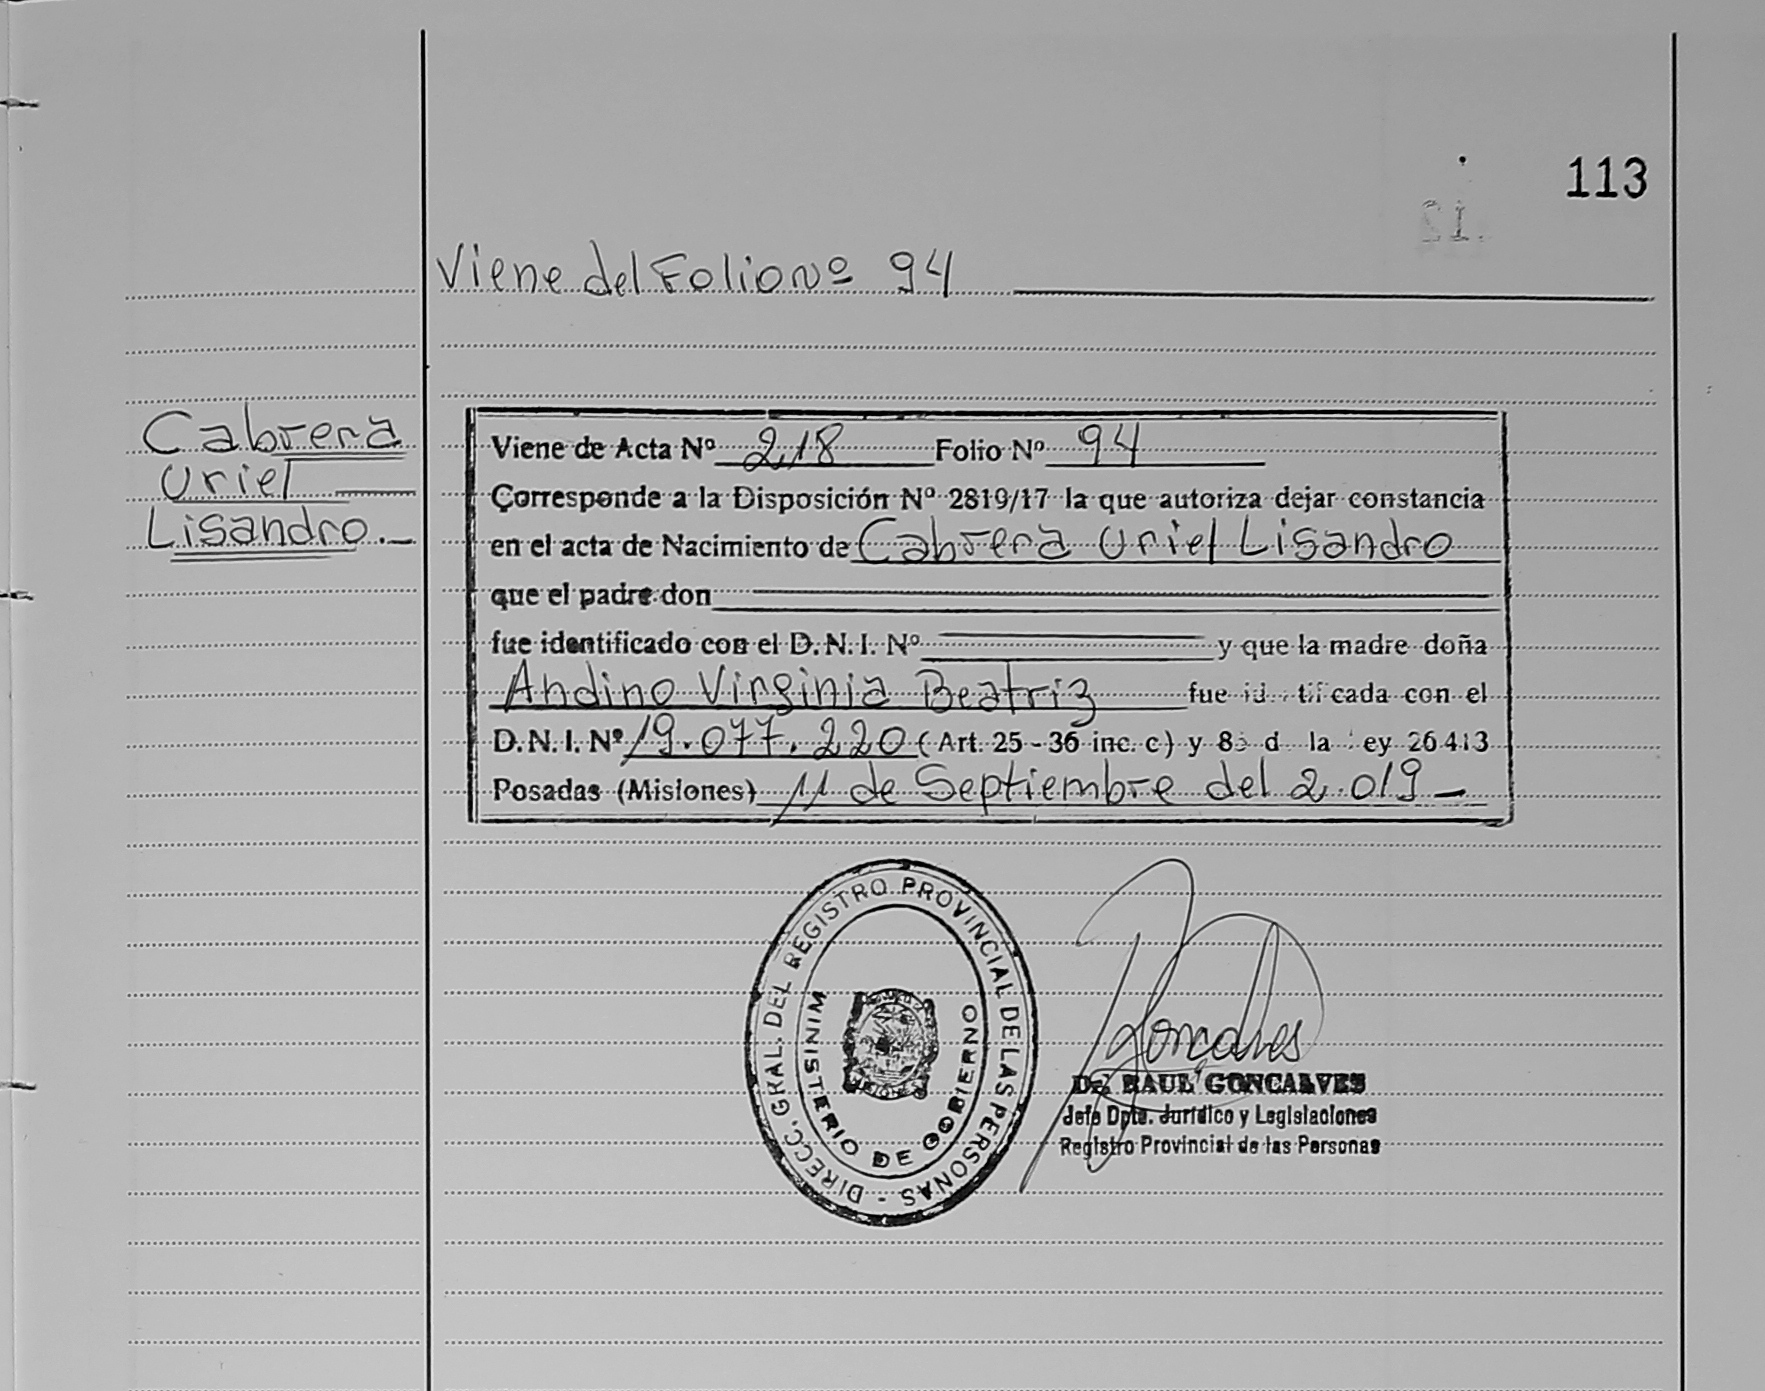 113
Viene del Folio Nº 94
Cabrera
Uriel
Lisandro.-
Viene de Acta Nº 218 Folio Nº 94
Corresponde a la Disposición Nº 2819/17 la que autoriza dejar constancia
en el acta de Nacimiento de Cabrera Uriel Lisandro
que el padre don
fue identificado con el D. N. I. Nº y que la madre doña
Andino Virginia Beatriz fue id tificada con el
D. N. I. Nº 19.077.220 (Art. 25 - 36 inc. c) y d la ey 26413
Posadas (Misiones) 11 de Septiembre del 2.019 -
DIRECC. GRAL. DEL REGISTRO PROVINCIAL DE LAS PERSONAS -
MINISTERIO DE GOBIERNO
Goncalves
Dr. RAUL GONCALVES
Jefe Dpto. Jurídico y Legislaciones
Registro Provincial de las Personas